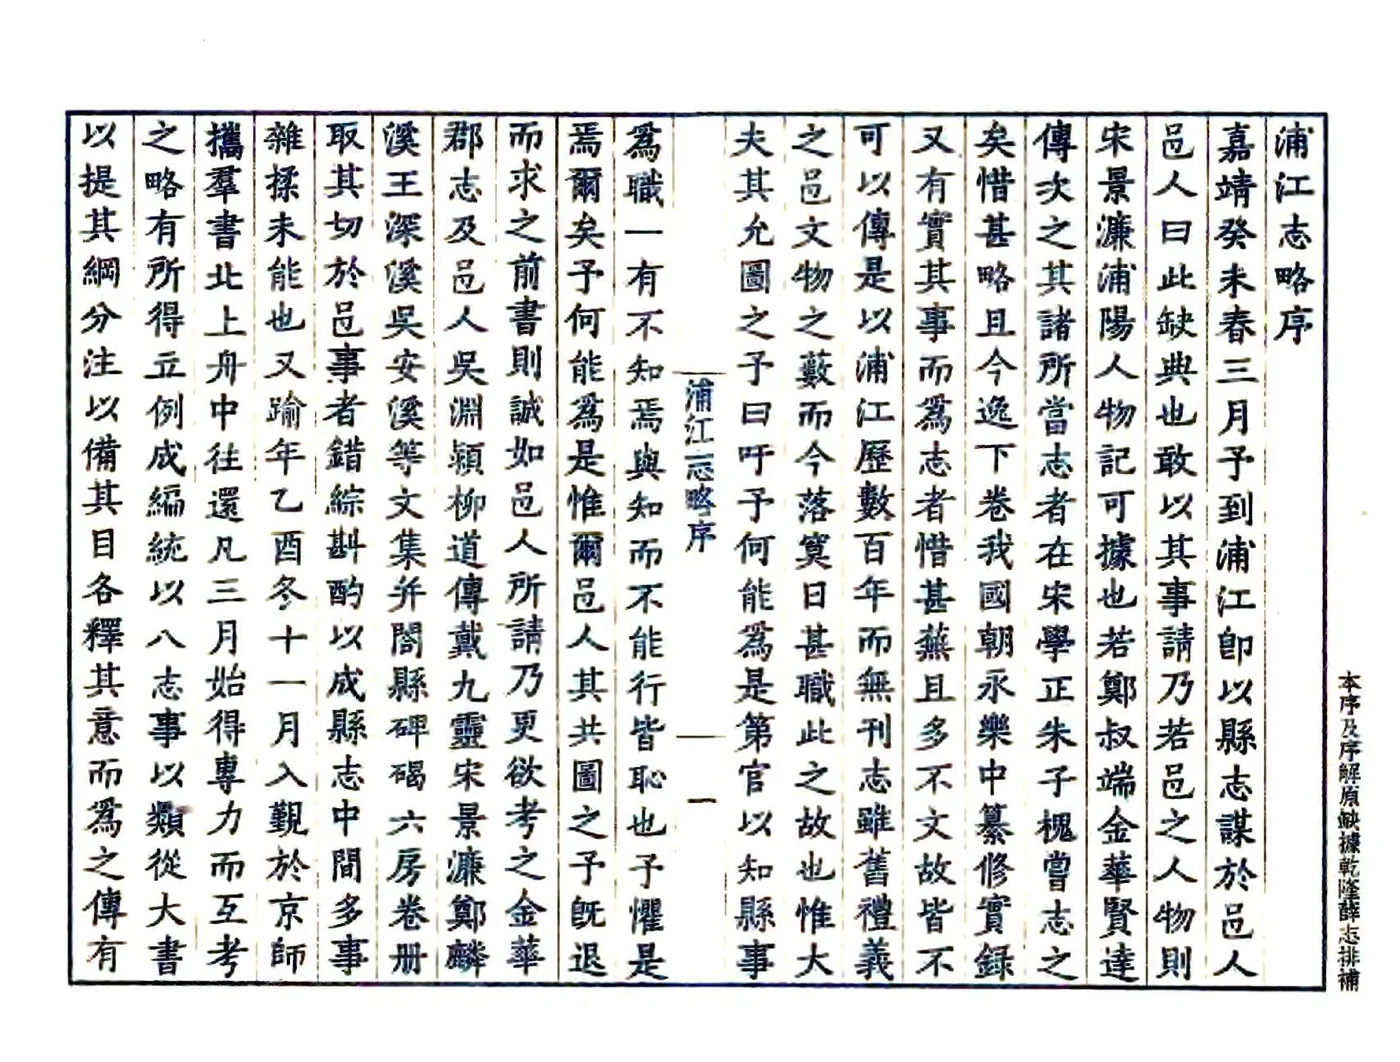 浦江志略序
嘉靖癸未春三月予到浦江卽以縣志謀於邑人
邑人曰此缺典也敢以其事請乃若邑之人物則
宋景濂浦陽人物記可據也若鄭叔端金華賢達
傳次之其諸所當志者在宋學正朱子槐嘗志之
矣惜甚略且今逸下卷我國朝永樂中纂修實録
又有實其事而爲志者惜甚蕪且多不文故皆不
可以傳是以浦江歷數百年而無刊志雖舊禮義
之邑文物之藪而今落寞日甚職此之故也惟大
夫其允圖之予曰吁予何能爲是第官以知縣事
浦江志略序
一
爲職一有不知焉與知而不能行皆恥也予懼是
焉爾矣予何能爲是惟爾邑人其共圖之予旣退
而求之前書則誠如邑人所請乃更欲考之金華
郡志及邑人吳淵穎柳道傳戴九靈宋景濂鄭麟
溪王深溪吳安溪等文集并閤縣碑碣六房卷册
取其切於邑事者錯綜斟酌以成縣志中間多事
雜揉未能也又踰年乙酉冬十一月入覲於京師
攜羣書北上舟中往還凡三月始得專力而互考
之略有所得立例成編統以八志事以類從大書
以提其綱分注以備其目各釋其意而爲之傳有
本序及序解原缺據乾隆薛志排補